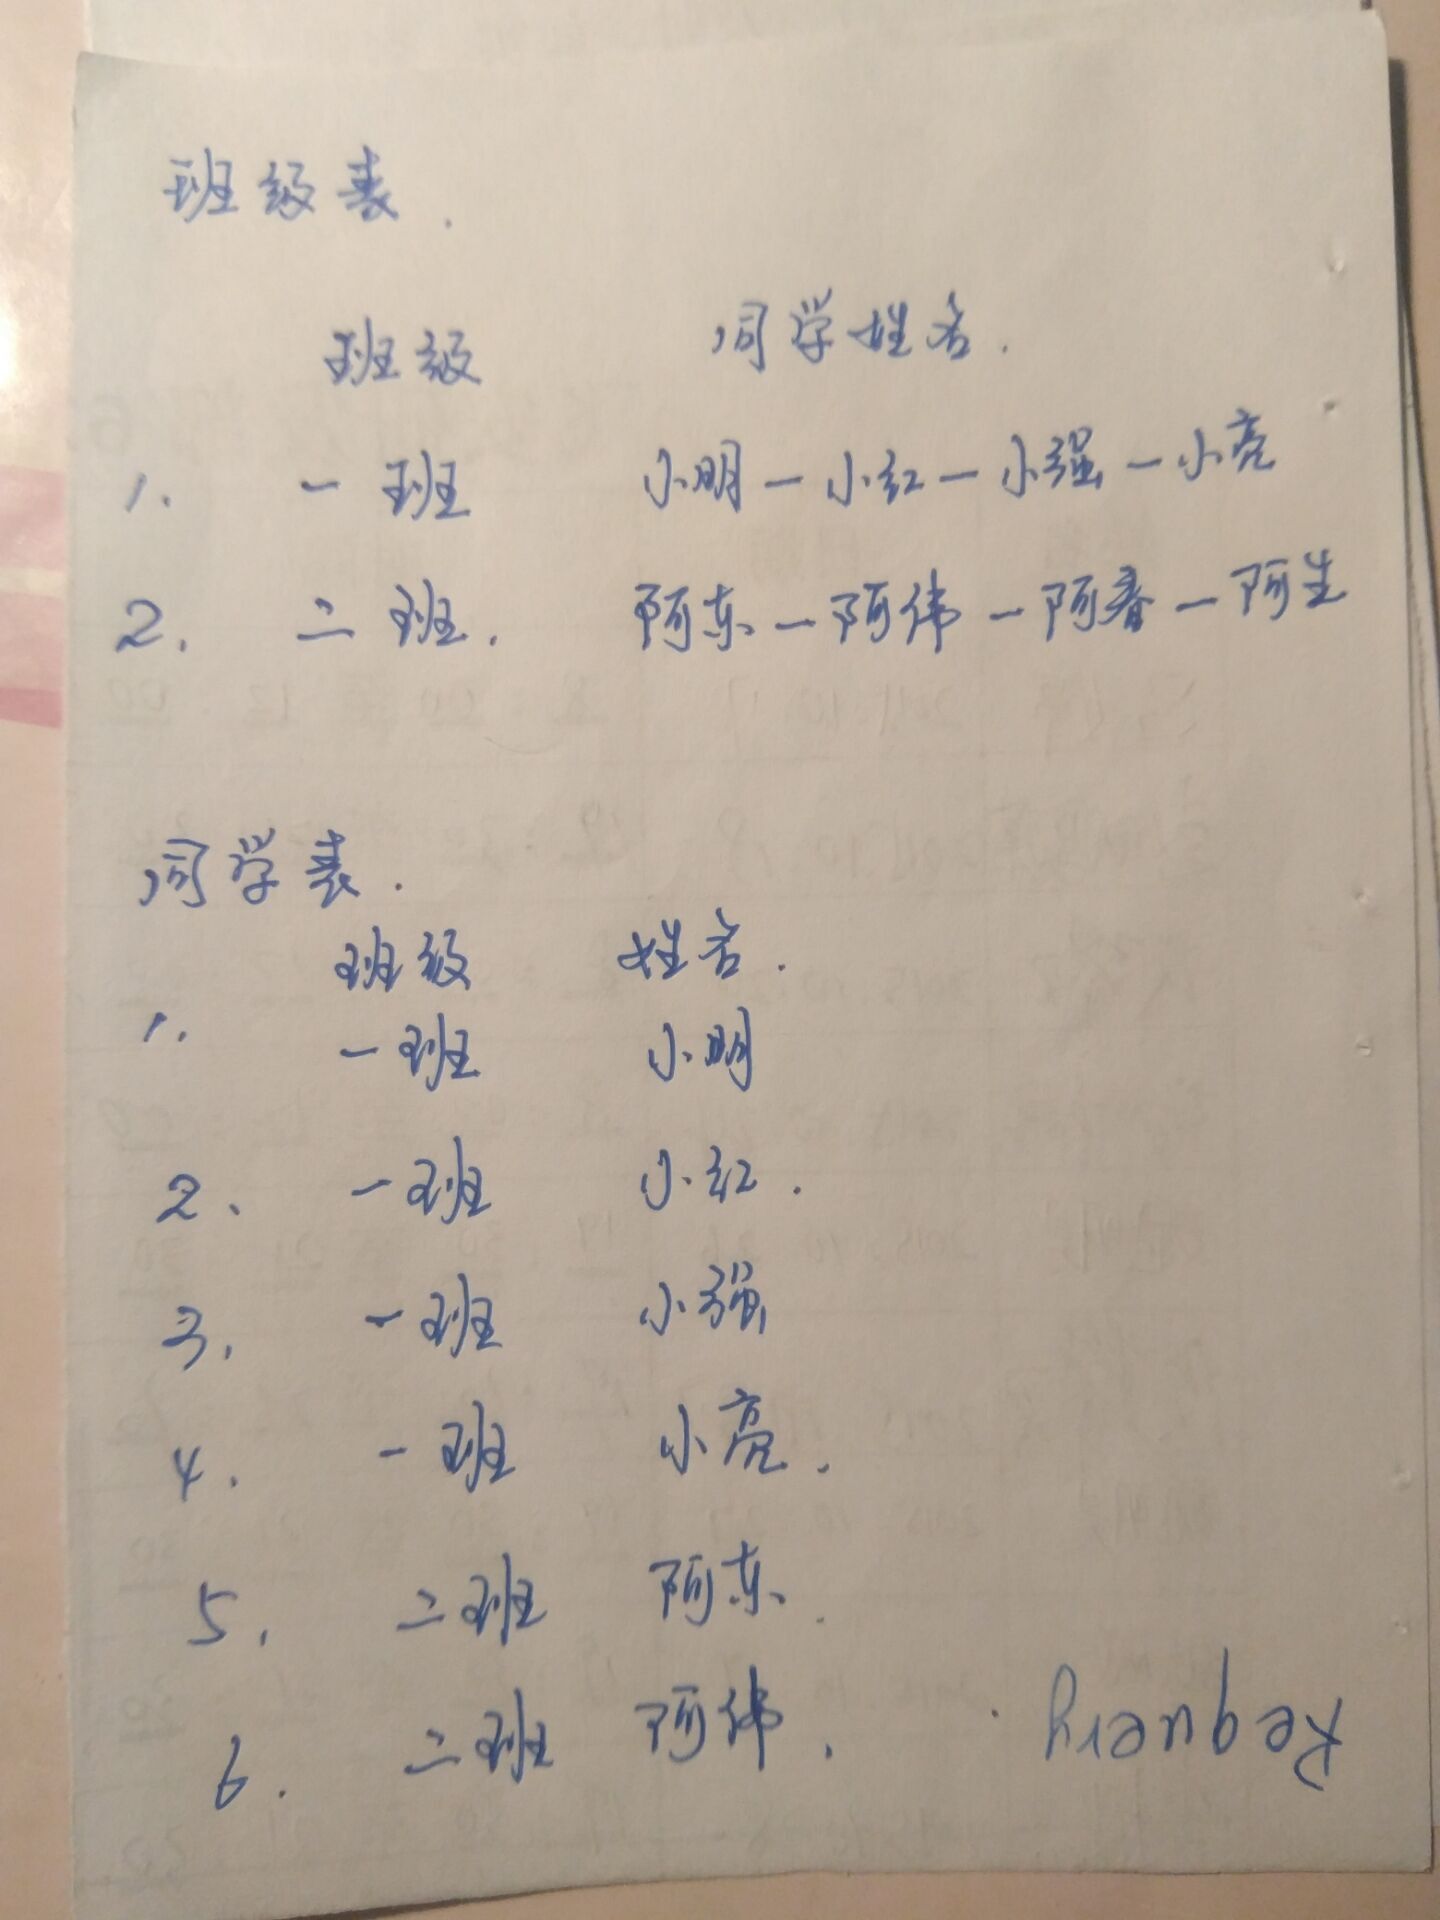 班级表.
班级 同学姓名.
1. 一班 小明一小红一小强一小亮
2. 二班. 阿东一阿伟一阿春一阿生
同学表.
班级 姓名.
1. 一班 小明
2、 一班 小红.
3. 一班 小强
4. 一班 小亮.
5. 二班 阿东.
6. 二班 阿伟.
Requery.